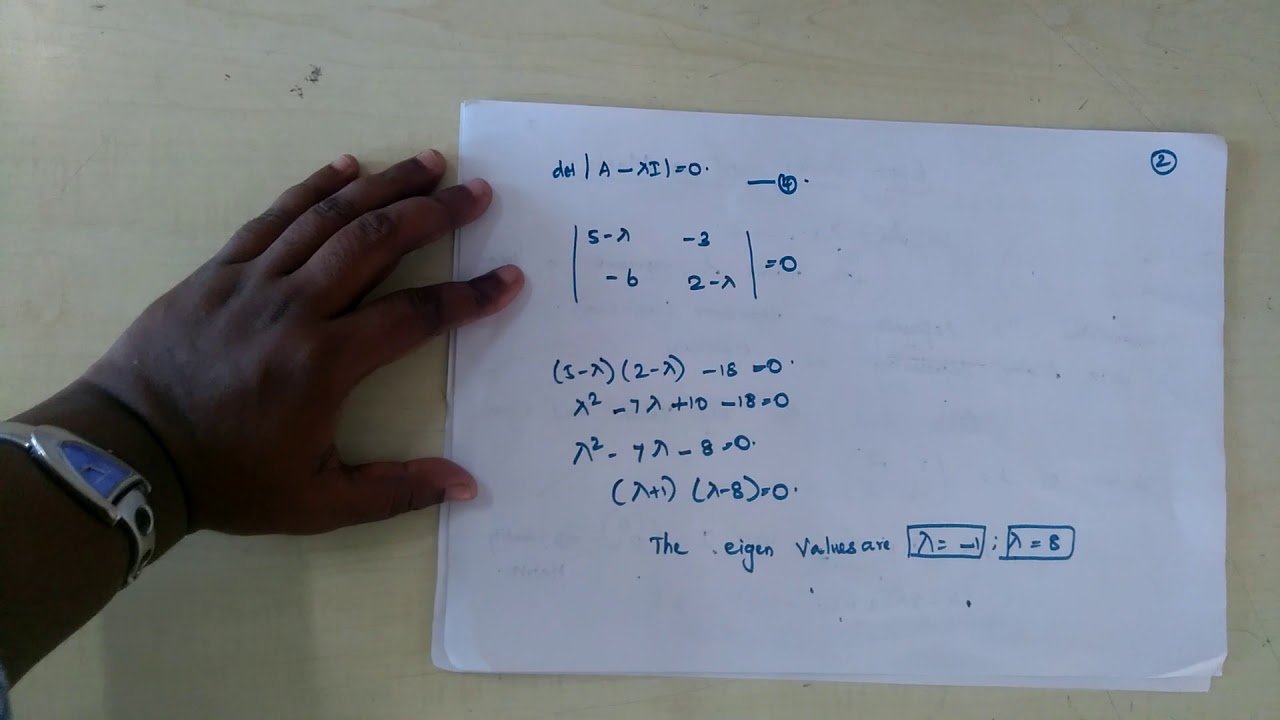 ②
det | A - λI | = 0. — ④.
| 5-λ -3 |
| -6 2-λ | = 0
(5-λ) (2-λ) - 18 = 0.
λ² - 7λ + 10 - 18 = 0
λ² - 7λ - 8 = 0.
(λ+1) (λ-8) = 0.
The eigen values are λ = -1 ; λ = 8